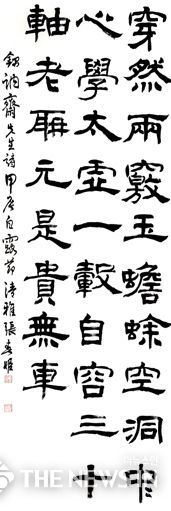 穿然兩竅玉蟾蜍空洞中
心學太虛一轂自容三十
軸老聃元是貴無車
訥齋先生詩 甲辰白露節 清雅 張春姬
THE NEWSIN